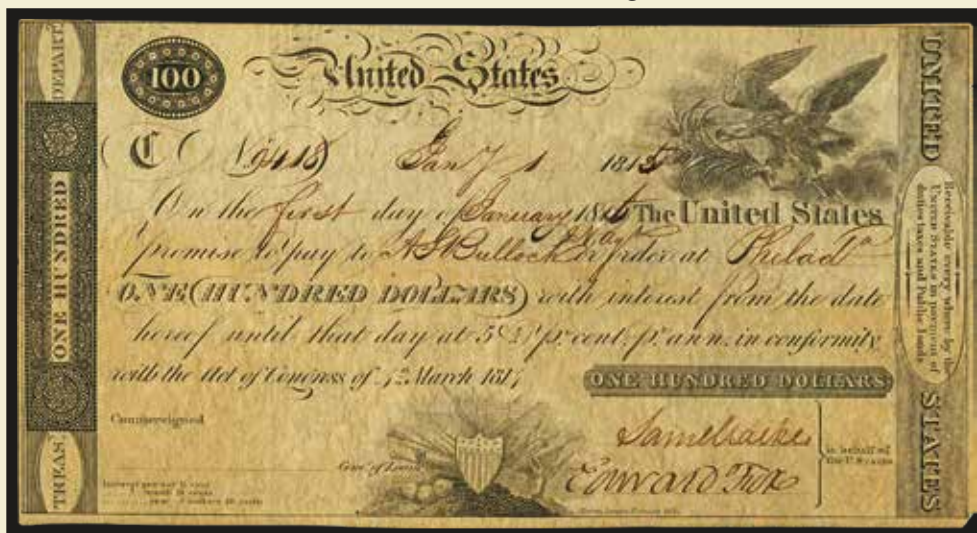 TREAS.
ONE HUNDRED
DEPART.
100
United States
C No
Jany 1 1815
On the first day of January 1816 The United States
promise to pay to A S Bulloch or order at Philada
ONE (HUNDRED DOLLARS) with interest from the date
hereof until that day at 5 2/5 pr. cent. pr. ann. in conformity
with the Act of Congress of March 1814
ONE HUNDRED DOLLARS
Countersigned
Comr. of Loans
Edward Fox
in behalf of
the U. States
UNITED STATES
Receivable every where by the
UNITED STATES in payment of
duties taxes and Public Lands